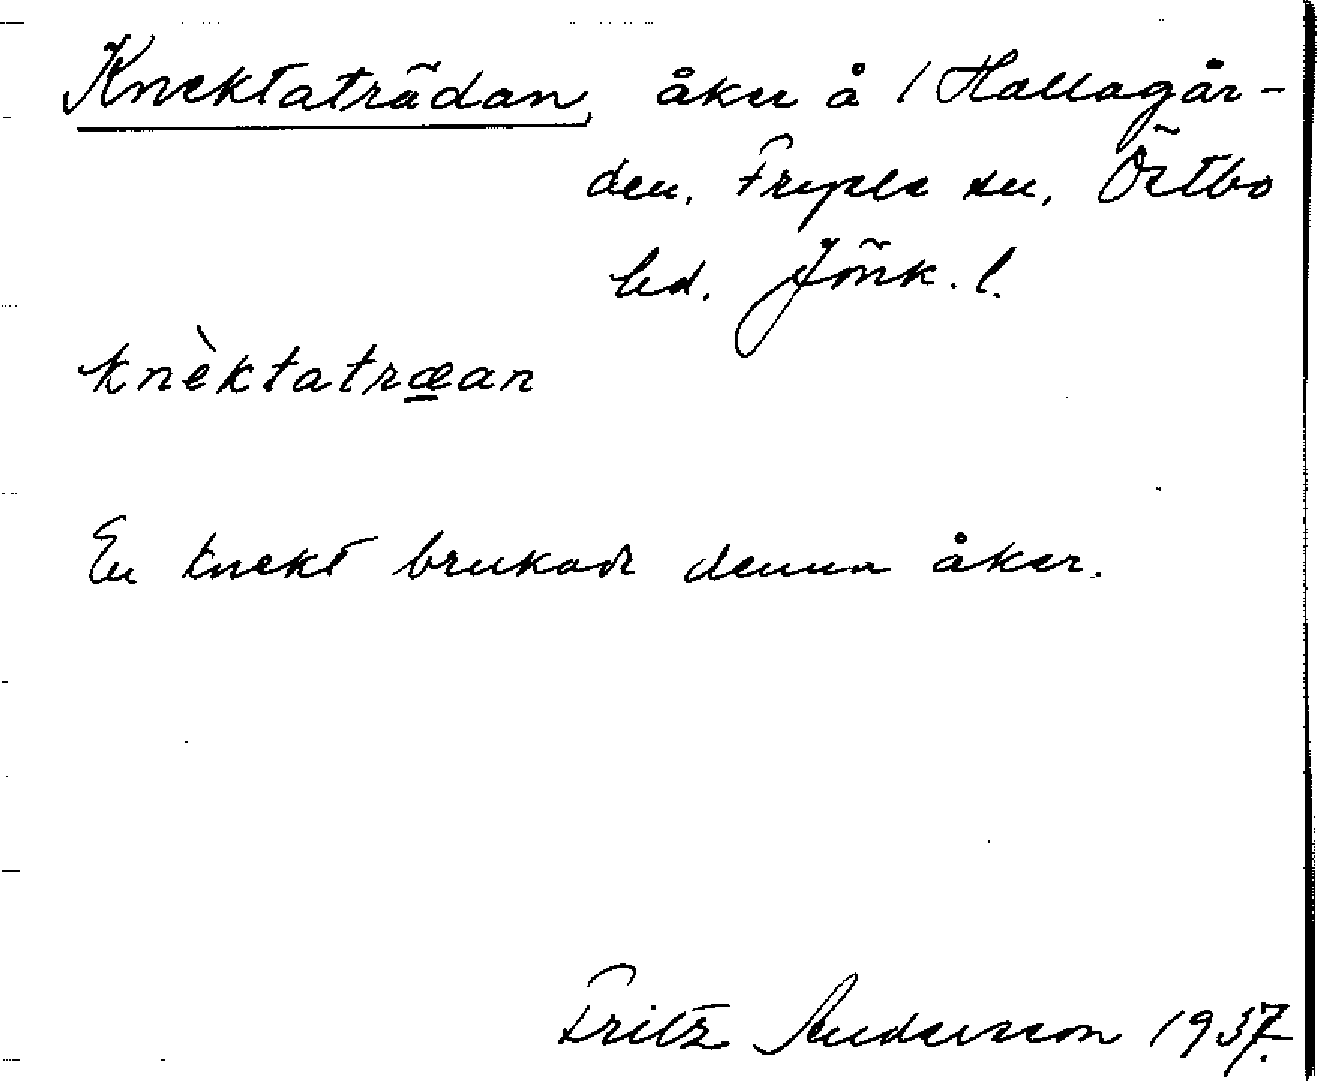 Knektaträdan, åker å 1 Hallagår-
den. Fryele sn, Östbo
hd. Jönk. l.
knèktatræan
En knekt brukade denna åker.
Fritz Andersson 1937.